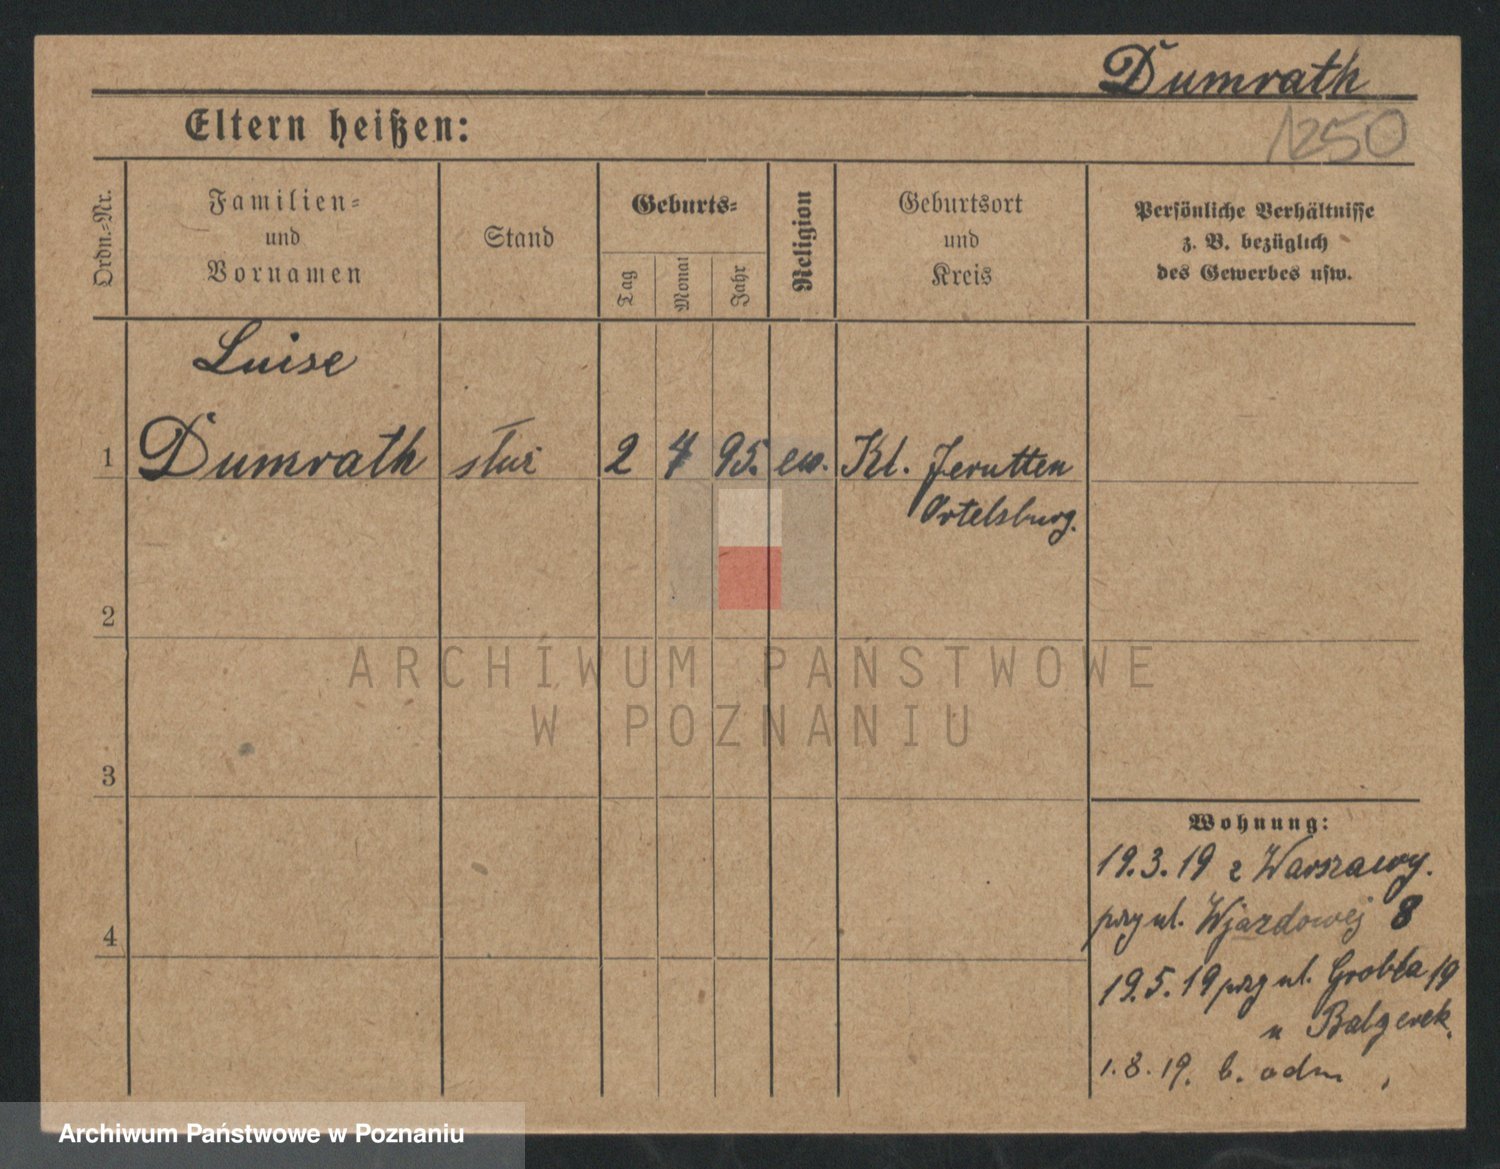 Dumrath
1250
Eltern heißen:
Ordn.-Nr.
Familien-
und
Vornamen
Stand
Geburts-
Tag
Monat
Jahr
Religion
Geburtsort
und
Kreis
Persönliche Verhältnisse
z. B. bezüglich
des Gewerbes usw.
Luise
1 Dumrath służ 2 4 95. ew. Kl. Jerutten
Ortelsburg.
2
3
4
Wohnung:
19.3.19 z Warszawy.
przy ul. Wjazdowej 8
19.5.19 przy ul. Grobla 19
u Balgerek.
1.8.19. b. odm
ARCHIWUM PAŃSTWOWE
W POZNANIU
Archiwum Państwowe w Poznaniu